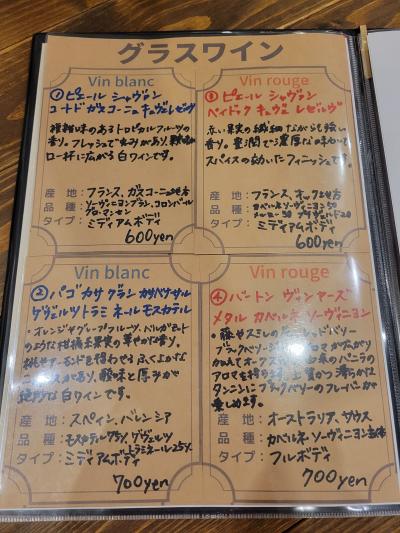 グラスワイン
Vin blanc
① ピエール シャヴァン
コートド ガスコーニュ キュヴェレゼルヴ
柑橘味のあるトロピカルフルーツの
香り。フレッシュで丸みがあり、
口一杯に広がる白ワインです。
産 地：フランス、ガスコーニュ地方
品 種：ソーヴィニヨンブラン、コロンバール
グロ・マンセン
タイプ：ミディアムボディ
600yen
Vin rouge
③ ピエール シャヴァン
ペイドック キュヴェ レゼルヴ
赤い果実の繊細ながらも強い
香り。豊潤で濃厚な味わいで
スパイスの効いたフィニッシュです。
産 地：フランス、オック地方
品 種：カベルネ ソーヴィニヨン50
メルロー30 20
タイプ：ミディアムボディ
600yen
Vin blanc
② パゴ カサ グラン カサベナサル
ゲヴュルツトラミネール モスカテル
・オレンジやグレープフルーツ、ベルガモット
のような柑橘系果実の華やかな香り。
アーモンドを得わせるふくよかな
があり、酸味と厚みが
白ワインです。
産 地：スペイン、バレンシア
品 種：モスカテル75% ゲヴュルツ
トラミネール25%
タイプ：ミディアムボディ
700yen
Vin rouge
④ バートン ヴィンヤーズ
メタル カベルネ ソーヴィニヨン
・ スミレの ベリー
ブラックベリー アロマが広がり
オーク 由来のバニラの
アロマを 上質かつ滑らかな
タンニンにブラックベリーのフレーバーが
楽しめます。
産 地：オーストラリア、サウス
品 種：カベルネ ソーヴィニヨン主体
タイプ：フルボディ
700yen